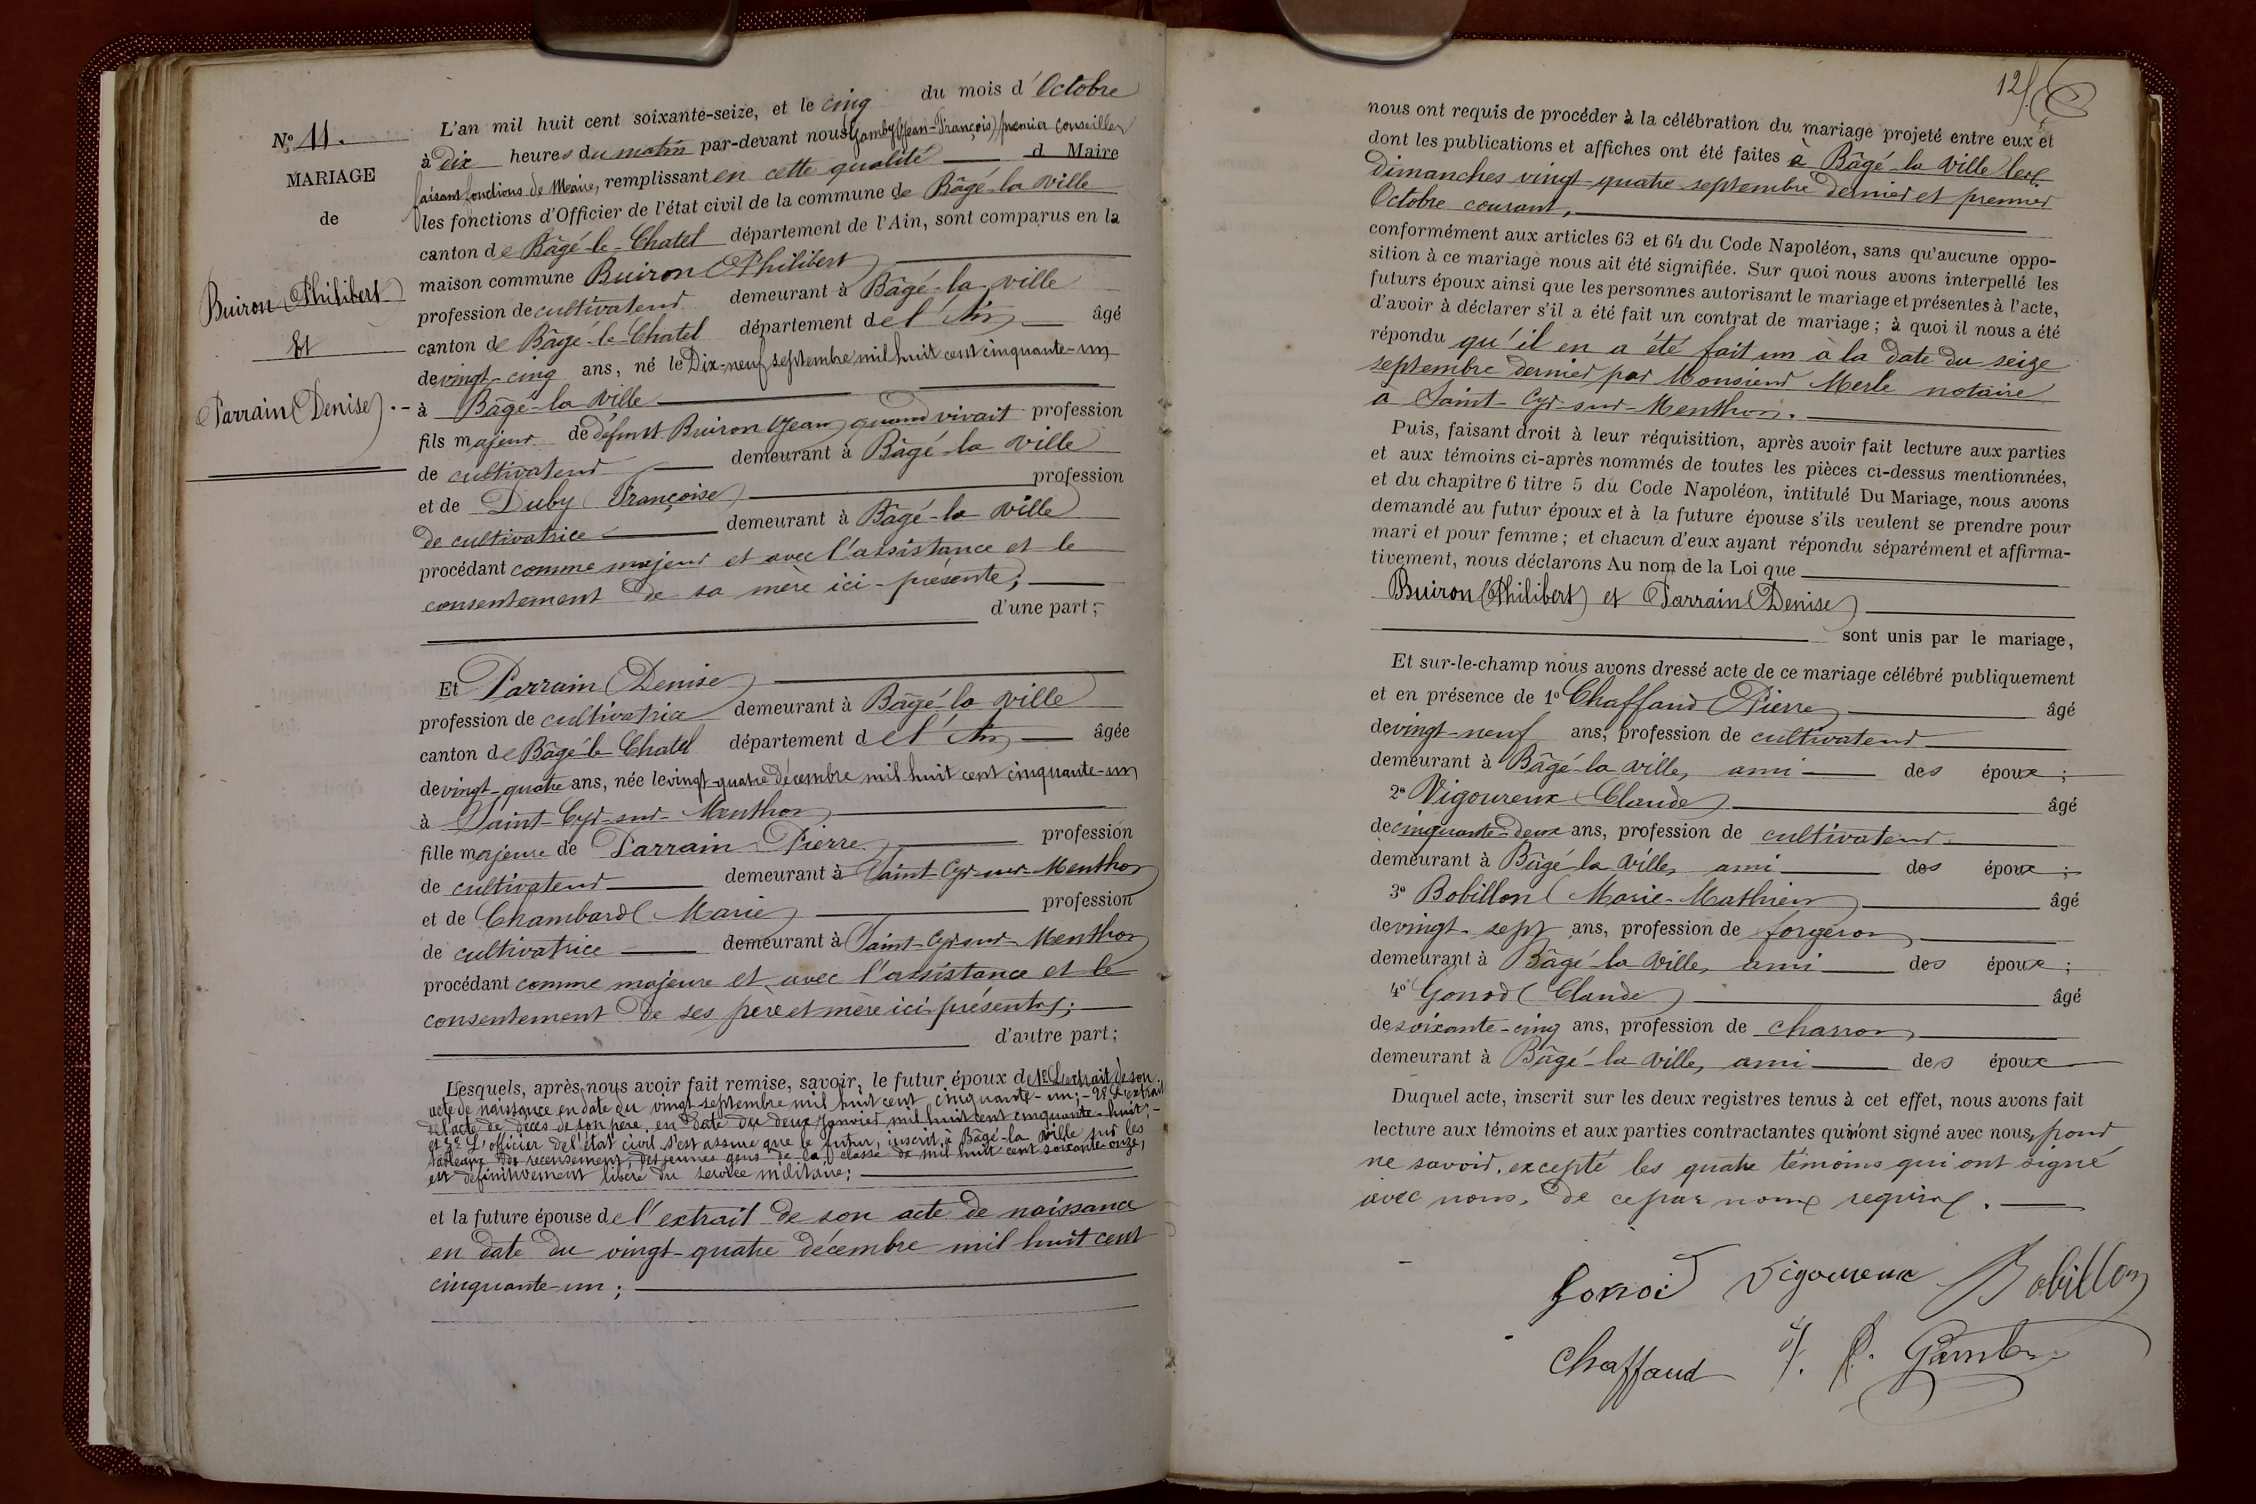 N° 11.
MARIAGE
de
Buiron (Philibert)
Et
Parrain (Denise).
L'an mil huit cent soixante-seize, et le cinq du mois d'Octobre
à Dix heures du matin par-devant nous Gamby (Jean-François) premier conseiller
faisant fonctions de Maire, remplissant en cette qualité d Maire
les fonctions d'Officier de l'état civil de la commune de Bâgé-la Ville
canton de Bâgé-le-Chatel département de l'Ain, sont comparus en la
maison commune Buiron (Philibert)
profession de cultivateur demeurant à Bâgé-la-ville
canton de Bâgé-le-Chatel département de l'Ain âgé
de vingt-cinq ans, né le Dix-neuf septembre mil huit cent cinquante-un
à Bâgé-la Ville
fils majeur de défunt Buiron Jean, quand vivait profession
de cultivateur demeurant à Bâgé-la Ville
et de Duby (Françoise) profession
de cultivatrice demeurant à Bâgé-la Ville
procédant comme majeur et avec l'assistance et le
consentement de sa mère ici-présente;
d'une part;
Et Parrain (Denise)
profession de cultivatrice demeurant à Bâgé-la Ville
canton de Bâgé-le Chatel département de l'Ain âgée
de vingt-quatre ans, née le vingt-quatre décembre mil huit cent cinquante-un
à Saint-Cyr-sur-Menthon
fille majeure de Parrain Pierre profession
de cultivateur demeurant à Saint-Cyr-sur-Menthon
et de Chambard (Marie) profession
de cultivatrice demeurant à Saint-Cyr-sur-Menthon
procédant comme majeure et avec l'assistance et le
consentement de ses pere et mère ici présents;
d'autre part;
Lesquels, après nous avoir fait remise, savoir, le futur époux de 1° L'extrait de son
acte de naissance en date du vingt septembre mil huit cent cinquante-un; - 2° L'extrait
de l'acte de décès de son père, en date du deux Janvier mil huit cent cinquante-huit; -
et 3° L'officier de l'état civil s'est assuré que le futur, inscrit à Bâgé-la Ville sur les
tableaux de recensement, des jeunes gens de la classe de mil huit cent soixante-onze,
est définitivement libéré du service militaire;
et la future épouse de l'extrait de son acte de naissance
en date du vingt-quatre décembre mil huit cent
cinquante-un;
12
nous ont requis de procéder à la célébration du mariage projeté entre eux et
dont les publications et affiches ont été faites à Bâgé-la Ville les
Dimanches vingt-quatre septembre dernier et premier
Octobre courant,
conformément aux articles 63 et 64 du Code Napoléon, sans qu'aucune oppo-
sition à ce mariage nous ait été signifiée. Sur quoi nous avons interpellé les
futurs époux ainsi que les personnes autorisant le mariage et présentes à l'acte,
d'avoir à déclarer s'il a été fait un contrat de mariage; à quoi il nous a été
répondu qu'il en a été fait un à la date du seize
septembre dernier par Monsieur Merle notaire
à Saint-Cyr-sur-Menthon.
Puis, faisant droit à leur réquisition, après avoir fait lecture aux parties
et aux témoins ci-après nommés de toutes les pièces ci-dessus mentionnées,
et du chapitre 6 titre 5 du Code Napoléon, intitulé Du Mariage, nous avons
demandé au futur époux et à la future épouse s'ils veulent se prendre pour
mari et pour femme; et chacun d'eux ayant répondu séparément et affirma-
tivement, nous déclarons Au nom de la Loi que
Buiron (Philibert) et Parrain (Denise)
sont unis par le mariage,
Et sur-le-champ nous avons dressé acte de ce mariage célébré publiquement
et en présence de 1° Chaffaud (Pierre) âgé
de vingt-neuf ans, profession de cultivateur
demeurant à Bâgé-la Ville, ami des époux;
2° Vigoureux (Claude) âgé
de cinquante-deux ans, profession de cultivateur
demeurant à Bâgé-la Ville, ami des époux;
3° Bobillon (Marie-Mathieu) âgé
de vingt-sept ans, profession de forgeron
demeurant à Bâgé-la Ville, ami des époux;
4° Gonod (Claude) âgé
de soixante-cinq ans, profession de charron
demeurant à Bâgé-la Ville, ami des époux
Duquel acte, inscrit sur les deux registres tenus à cet effet, nous avons fait
lecture aux témoins et aux parties contractantes qui n'ont signé avec nous, pour
ne savoir, excepté les quatre témoins qui ont signé
avec nous, de ce par nous requis.
Gonod Vigoureux Bobillon
Chaffaud Gamby